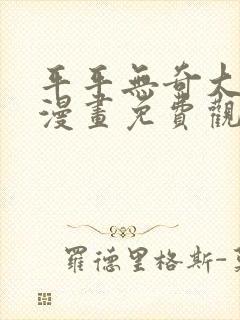 平平無奇大
漫畫免費觀
羅德里格斯-